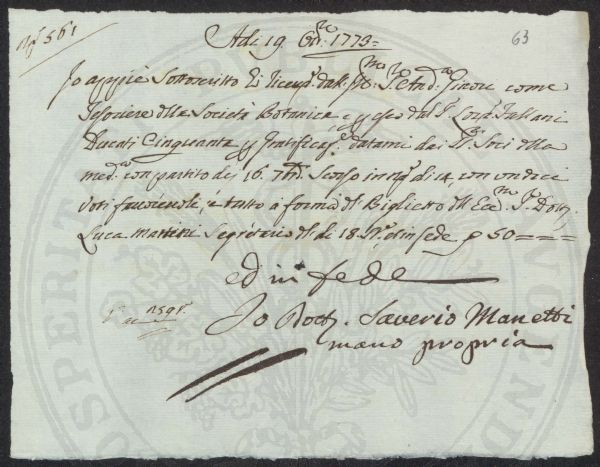 N.º 561
Adi 19 Ott.re 1773=
63
Io appiè Sottoscritto ho ricevuto dall' Ill.mo Sig.re And.a Ginori come
Tesoriere della Società Botanica e p esso dal S.r Lor.o
Ducati Cinquanta p datami dai SS.ri Soci della
med.a con partito de 16. Scorso in n.o di 14, con undici
voti favorevoli, e tutto a forma del Biglietto dell' Ecc.mo S.r Dott.
Luca Martini Segretario del di 18. d.o ed in fede p 50 = = =
ed in fede
Io Dott. Saverio Manetti
mano propria